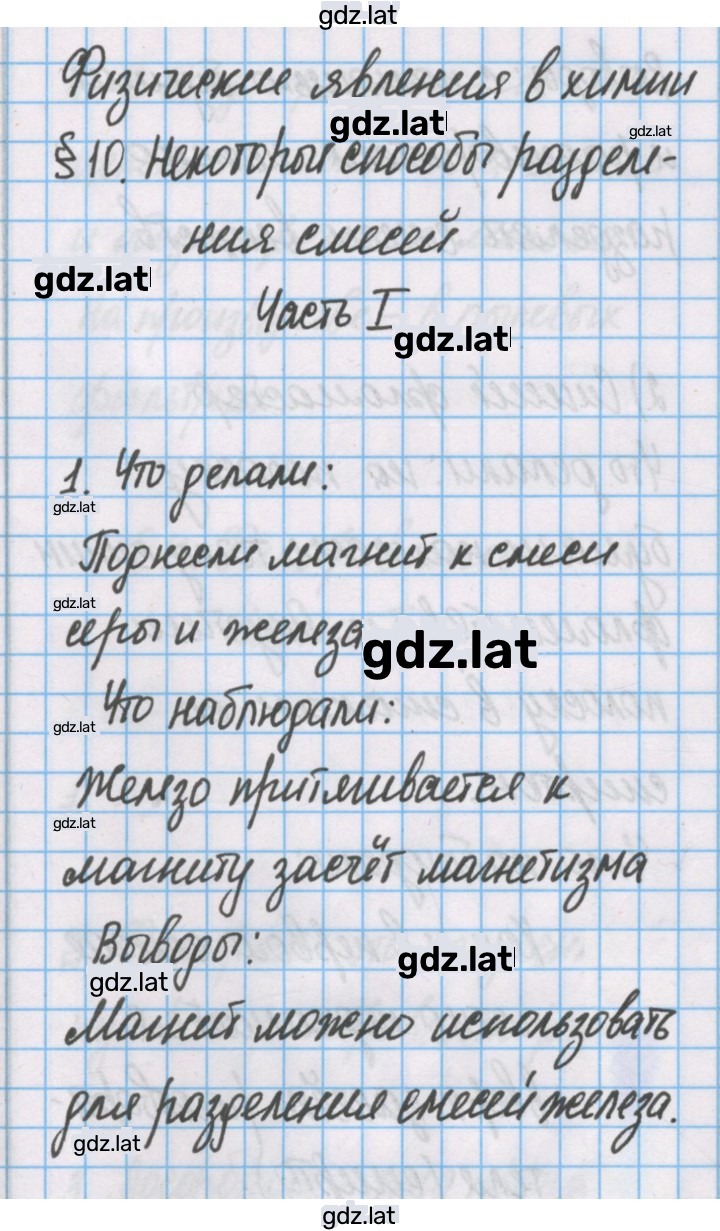 gdz.lat
Физические явления в химии
gdz.lat
gdz.lat
§ 10. Некоторые способы разделе-
ния смесей
gdz.lat
Часть I
gdz.lat
1. Что делали:
gdz.lat
Поднесли магнит к смеси
gdz.lat
серы и железа
gdz.lat
Что наблюдали:
gdz.lat
Железо притягивается к
gdz.lat
магниту засчёт магнетизма
Выводы:
gdz.lat
gdz.lat
Магнит можно использовать
для разделения смесей железа.
gdz.lat
gdz.lat